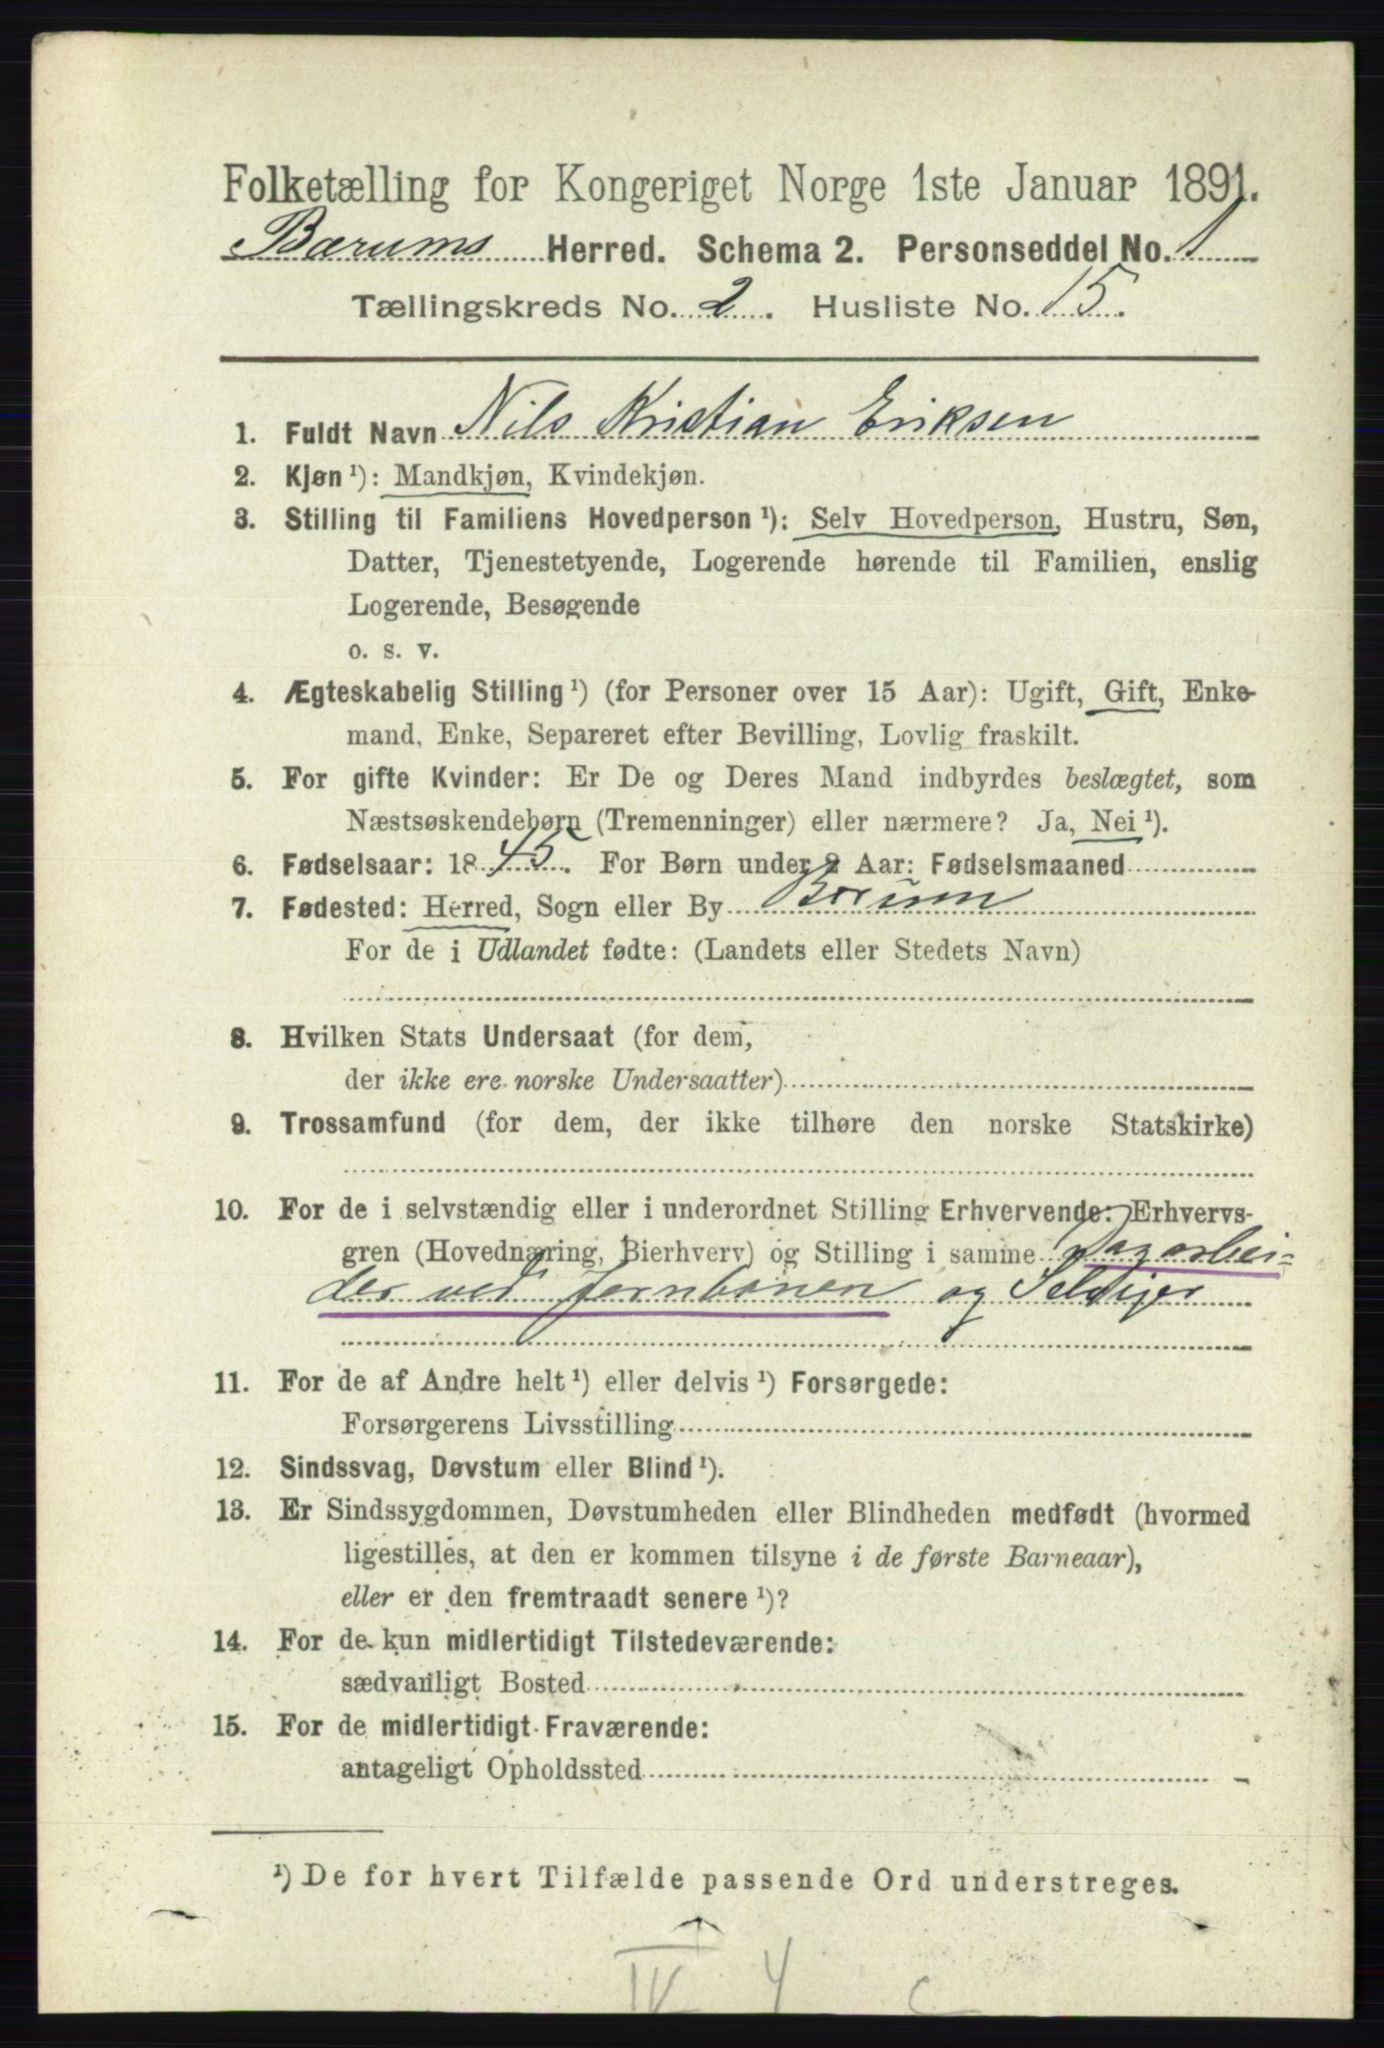 Folketælling for Kongeriget Norge 1ste Januar 1891.
Bærums Herred. Schema 2. Personseddel No. 1
Tællingskreds No. 2. Husliste No. 15.
1. Fuldt Navn Nils Kristian Eriksen
2. Kjøn ¹): Mandkjøn, Kvindekjøn.
3. Stilling til Familiens Hovedperson ¹): Selv Hovedperson, Hustru, Søn,
Datter, Tjenestetyende, Logerende hørende til Familien, enslig
Logerende, Besøgende
o. s. v.
4. Ægteskabelig Stilling ¹) (for Personer over 15 Aar): Ugift, Gift, Enke-
mand, Enke, Separeret efter Bevilling, Lovlig fraskilt.
5. For gifte Kvinder: Er De og Deres Mand indbyrdes beslægtet, som
Næstsøskendebørn (Tremenninger) eller nærmere? Ja, Nei ¹).
6. Fødselsaar: 1845. For Børn under 2 Aar: Fødselsmaaned
7. Fødested: Herred, Sogn eller By Bærum
For de i Udlandet fødte: (Landets eller Stedets Navn)
8. Hvilken Stats Undersaat (for dem,
der ikke ere norske Undersaatter)
9. Trossamfund (for dem, der ikke tilhøre den norske Statskirke)
10. For de i selvstændig eller i underordnet Stilling Erhvervende: Erhvervs-
gren (Hovednæring, Bierhverv) og Stilling i samme Dagarbei-
der ved Jernbanen og Seleiger
11. For de af Andre helt ¹) eller delvis ¹) Forsørgede:
Forsørgerens Livsstilling
12. Sindssvag, Døvstum eller Blind ¹).
13. Er Sindssygdommen, Døvstumheden eller Blindheden medfødt (hvormed
ligestilles, at den er kommen tilsyne i de første Barneaar),
eller er den fremtraadt senere ¹)?
14. For de kun midlertidigt Tilstedeværende:
sædvanligt Bosted
15. For de midlertidigt Fraværende:
antageligt Opholdssted
¹) De for hvert Tilfælde passende Ord understreges.
IV 4 c